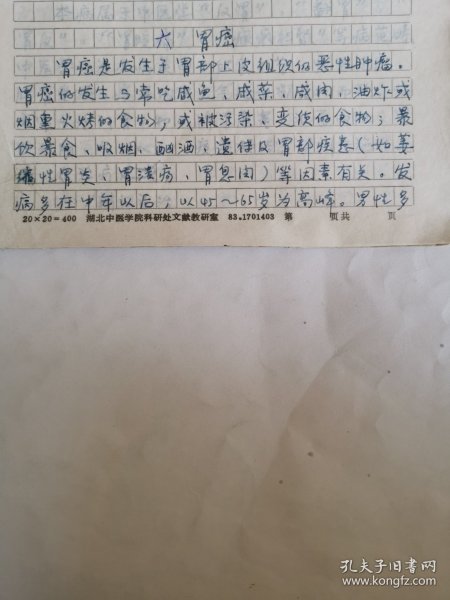 六 胃癌
胃癌是发生于胃部上皮组织的恶性肿瘤。
胃癌的发生与常吃咸鱼、咸菜、咸肉、油炸或
烟熏火烤的食物，或被污染、变质的食物；暴
饮暴食、吸烟、酗酒、遗传及胃部疾患（如萎
缩性胃炎、胃溃疡、胃息肉）等因素有关。发
病多在中年以后，以45～65岁为高峰。男性多
20×20=400 湖北中医学院科研处文献教研室 83.1701403 第 页共 页
孔夫子旧书网
www.kongfz.com